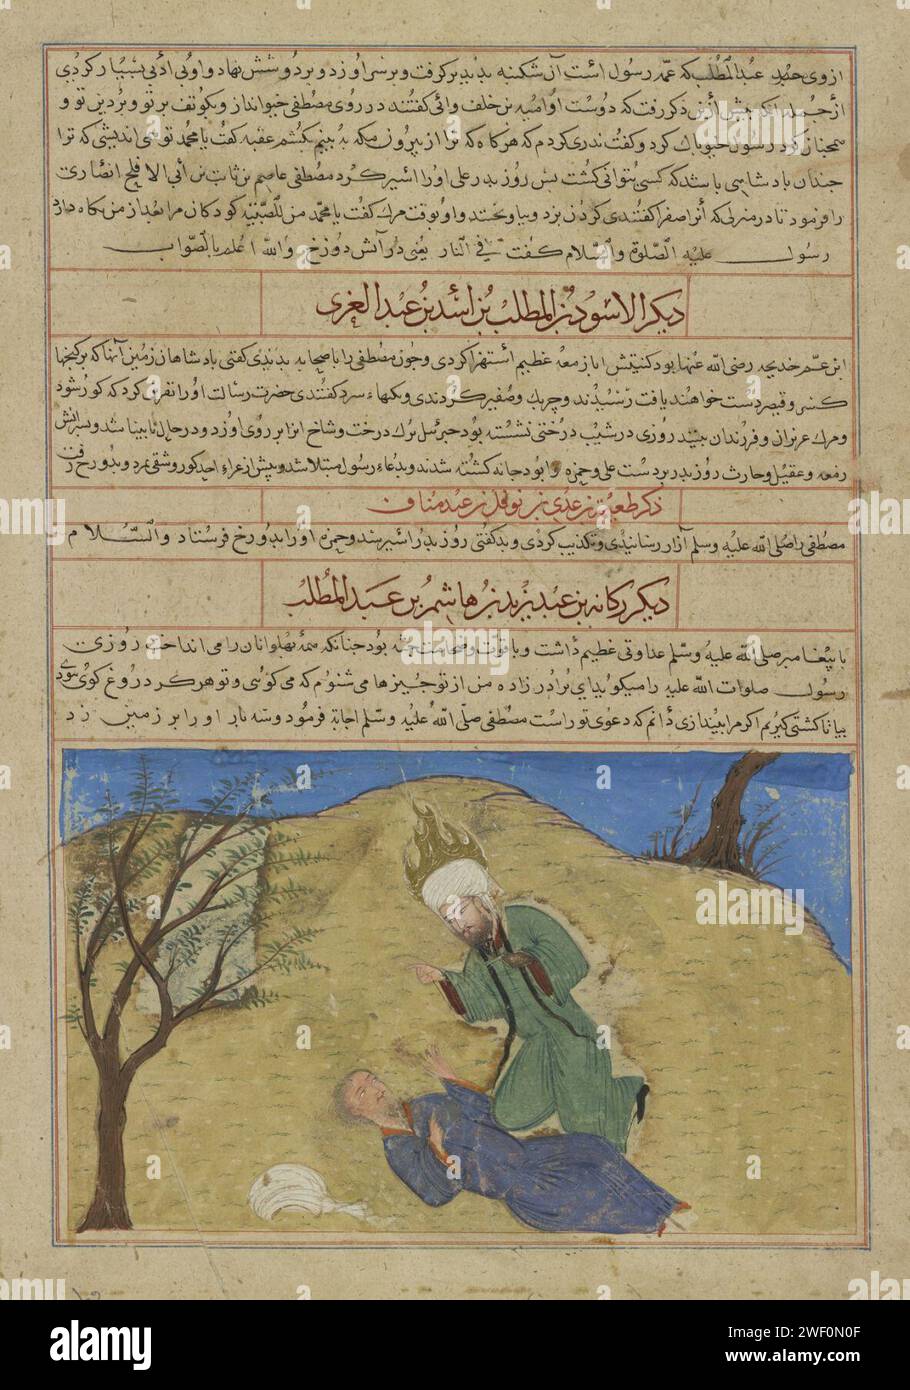 از وی حدید عبدالمطلب که عمّه رسول است آن شکنبه بدید برگرفت و بر سر او زد و بر دوشش نهاد و او بی ادبی بسیار کردی
از جمله آنکه پیش ازین ذکر رفت که دوست او امیه بن خلف وائی گفتند در روی مصطفی خیو انداز و بگو تف بر تو و بر دین تو و
کرد رسول خیو پاک کرد و گفت نذری کردم که هرگاه که ترا از بیرون مکه به بینم بکشم عقبه گفت یا محمد تو می اندیشی که ترا
چندان پادشاهی باشد که کسی بتوانی کشت پس روز بدر علی او را اسیر کرد مصطفی عاصم بن ثابت بن أبی الافلح انصاری
را فرمود تا در منزلی که آنرا صفرا گفتندی گردن بزد و بیاویختند و او بوقت مرگ گفت یا محمد من للصّبیّة کودکان مرا بعد از من نگاه دارد
رسول علیه الصّلوة والسّلام گفت فی النّار یعنی در آتش دوزخ والله اعلم بالصّواب
دیگر الاسود بن المطلب بن اسد بن عبدالعزی
ابن عمّ خدیجه رضی الله عنها بود کنیتش ابا زمعه عظیم استهزا کردی و چون مصطفی را با صحابه بدیدی گفتی پادشاهان زمین آنها که بر گنجها
کسری و قیصر دست خواهند یافت رسیدند و صفیر کردندی و سرد گفتندی حضرت رسالت او را نفرین کرد که کور شود
و مرگ عزیزان و فرزندان ببیند روزی در شیب درختی نشسته بود جبرئیل برگ درخت و شاخ بر روی او زد و در حال نابینا شد و پسرانش
زمعه و عقیل و حارث روز بدر بر دست علی و حمزه و ابودجانه کشته شدند و بدعاء رسول مبتلا شد و پیش از غزاء احد کور وشقی بمرد و بدوزخ رفت
ذکر طعیمة بن عدی بن نوفل بن عبد مناف
مصطفی را صلی الله علیه وسلم آزار رسانیدی و تکذیب کردی و بد گفتی روز بدر اسیر شد و حمزه او را بدوزخ فرستاد والسّلام
دیگر رکانه بن عبد یزید بن هاشم بن عبدالمطلب
با پیغامبر صلی الله علیه وسلم عداوتی عظیم داشت و با قوّت و ضخامت جثه بود چنانکه همه پهلوانان را می انداخت روزی
رسول صلوات الله علیه را میگوید ای برادر زاده من از تو چیزها می شنوم که می گوئی و تو هرگز دروغ گوی نبودی
بیا تا کشتی گیریم اگر مرا بیندازی دانم که دعوی تو راست مصطفی صلی الله علیه وسلم اجابة فرمود و سه بار او را بر زمین زد
alamy
Image ID: 2WF0N0F
www.alamy.com